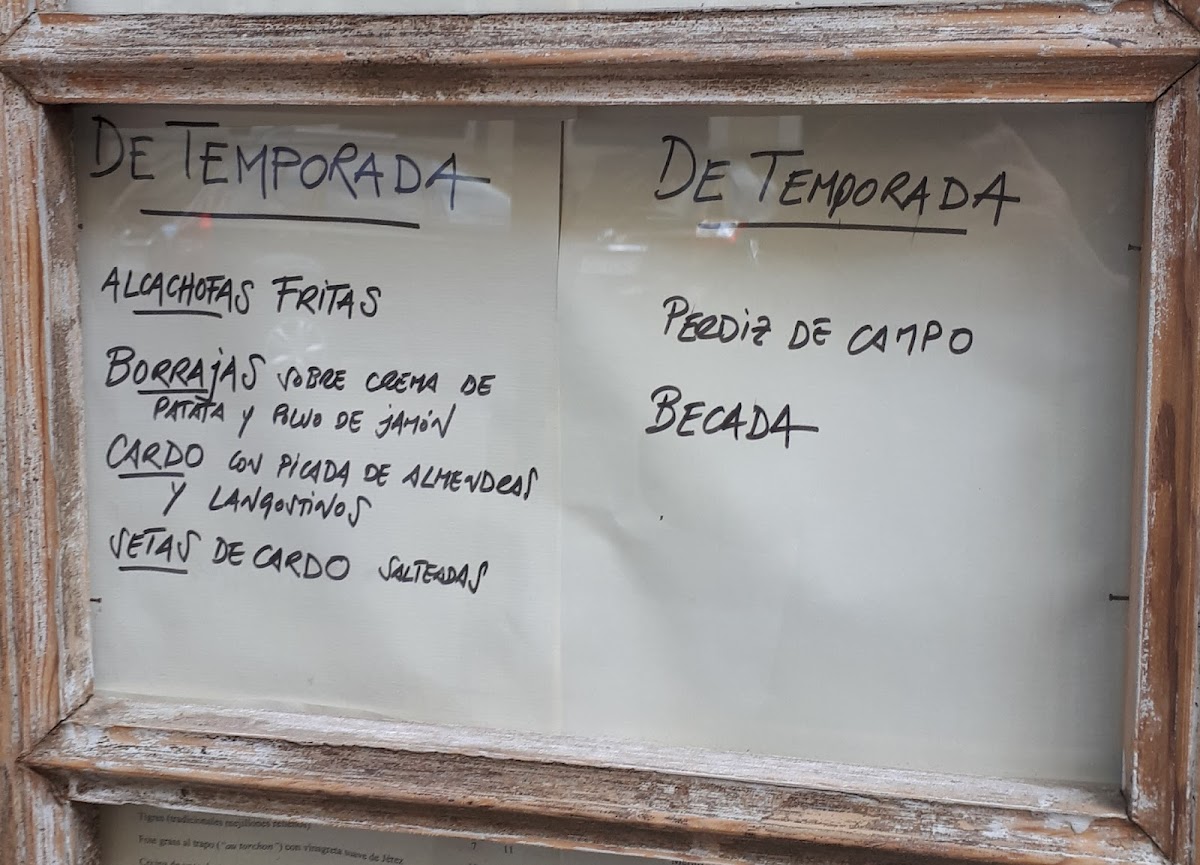 DE TEMPORADA
ALCACHOFAS FRITAS
BORRAJAS SOBRE CREMA DE
PATATA Y POLVO DE JAMÓN
CARDO CON PICADA DE ALMENDRAS
Y LANGOSTINOS
SETAS DE CARDO SALTEADAS
DE TEMPORADA
PERDIZ DE CAMPO
BECADA
Tigres (tradicionales mejillones rellenos)
Foie grass al trapo ("au torchon") con vinagreta suave de Jérez 7 11